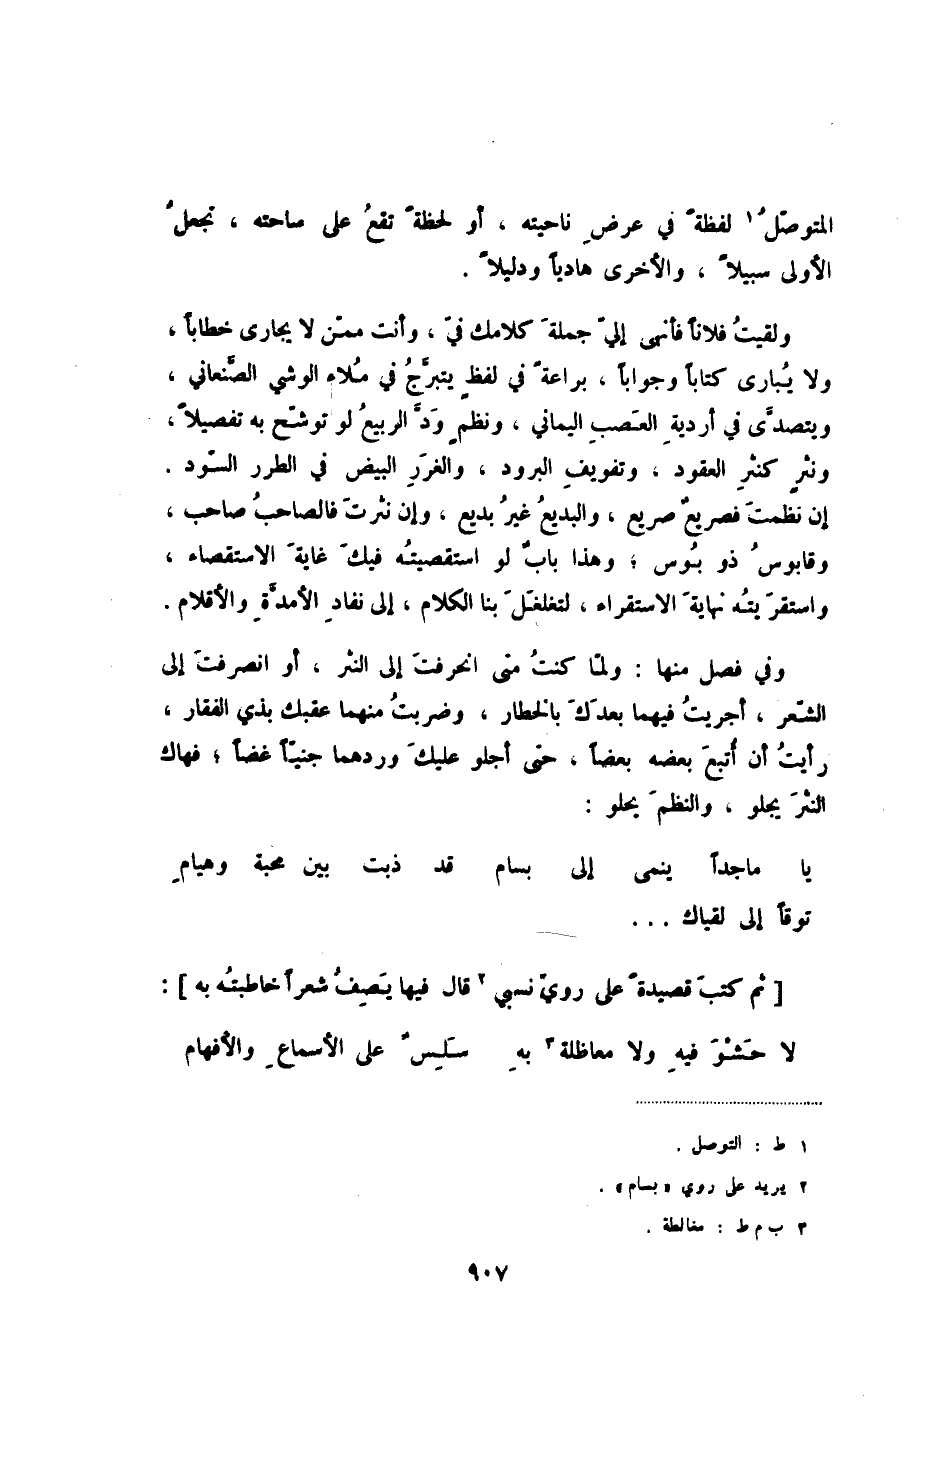 المتوصّلُ١ لفظةً في عرضِ ناحيته ، أو لحظةً تقعُ على ساحته ، تجعلُ
الأولى سبيلاً ، والأخرى هادياً ودليلاً .
ولقيتُ فلاناً فأنهى إليّ جملةَ كلامك فيّ ، وأنت ممّن لا يجارى خطاباً ،
ولا يُبارى كتاباً وجواباً ، براعةً في لفظٍ يتبرَّجُ في مُلاءِ الوشي الصَّنعاني ،
ويتصدَّى في أرديةِ العَصبِ اليماني ، ونظمٍ وَدَّ الربيعُ لو توشّح به تفصيلاً ،
ونثرٍ كنثرِ العقود ، وتفويفِ البرود ، والغرَرِ البيض في الطرر السّود .
إن نظمتَ فصريعٌ صريع ، والبديعُ غيرُ بديع ، وإن نثرتَ فالصاحبُ صاحب ،
وقابوسُ ذو بُوس ؛ وهذا بابٌ لو استقصيتُه فيكَ غايةَ الاستقصاء ،
واستقرَيتُه نهايةَ الاستقراء ، لتغلغَلَ بنا الكلام ، إلى نفادِ الأمدَّةِ والأقلام .
وفي فصل منها : ولمّا كنتُ متى انحرفتَ إلى النثر ، أو انصرفتَ إلى
الشّعر ، أجريتُ فيهما بعدَكَ بالخطار ، وضربتُ منهما عقبك بذي الفقار ،
رأيتُ أن أُتبعَ بعضه بعضاً ، حتّى أجلو عليكَ وردهما جنيّاً غضاً ؛ فهاك
النثرَ يجلو ، والنظمَ يحلو :
يا ماجداً ينمى إلى بسام قد ذبت بين محبة وهيامِ
توقاً إلى لقياك ...
[ ثم كتبَ قصيدةً على رويّ نسبي٢ قال فيها يَصِفُ شعراً خاطبتُه به ] :
لا حَشْوَ فيهِ ولا معاظلة٣ بهِ سَلِسٌ على الأسماعِ والأفهام
١ ط : التوصل .
٢ يريد على روي « بسام » .
٣ ب م ط : مغالطة .
٩٠٧